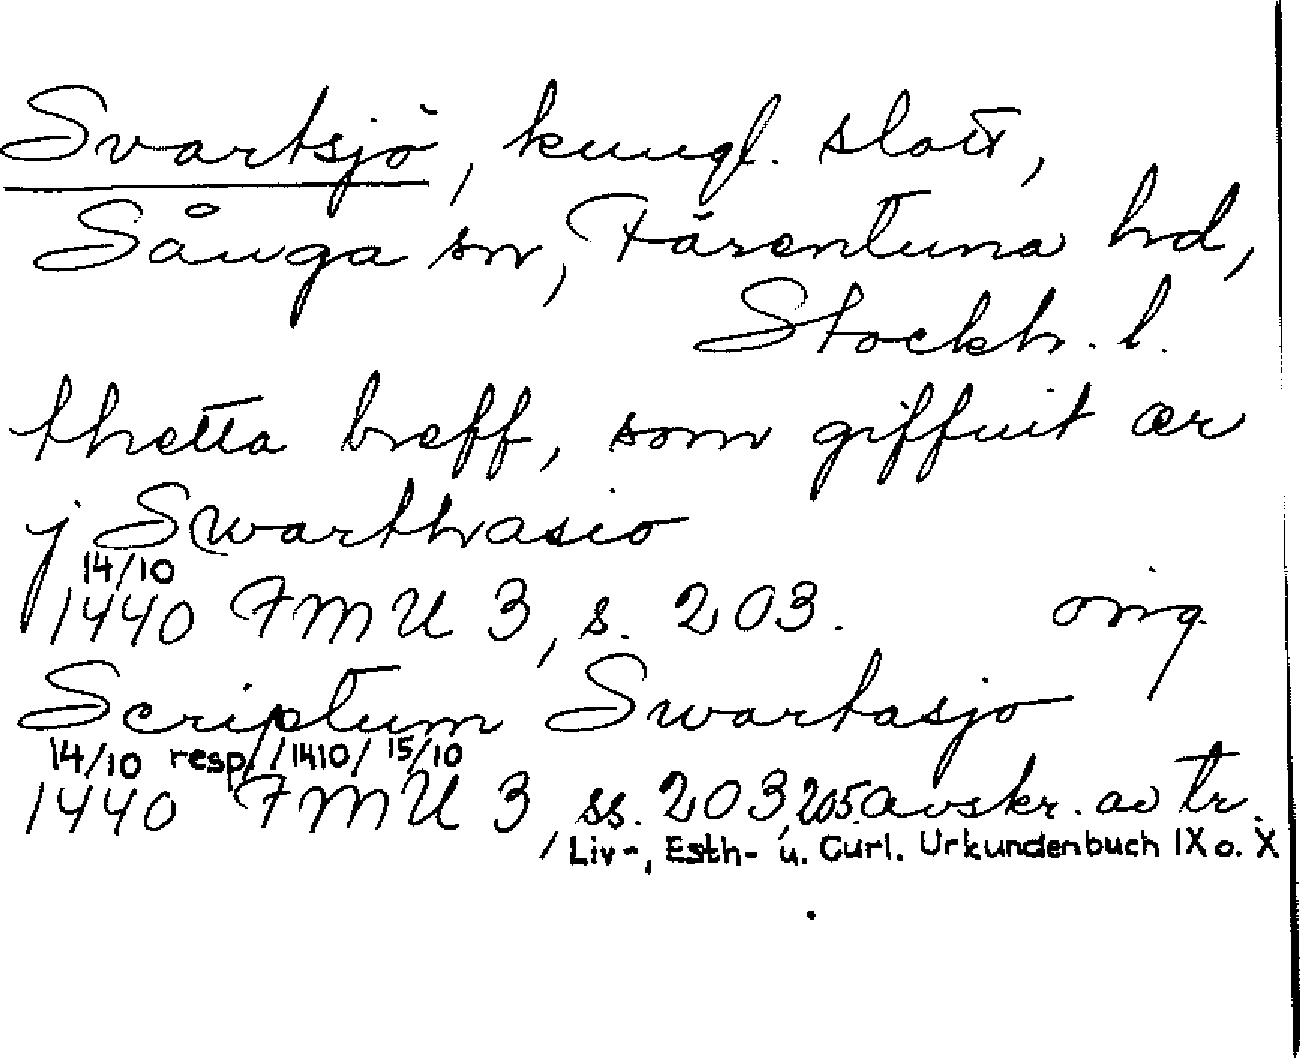 Svartsjö, kungl. slott,
Sånga sn, Färentuna hd,
Stockh. l.
thetta breff, som giffuit ær
j Swarthasio
14/10
1440 FMU 3, s. 203. orig.
Scriptum Swartasjo
14/10 resp. /1410/ 15/10
1440 FMU 3, ss. 203, 205. avskr. av tr.
Liv-, Esth- u. Curl. Urkundenbuch IX o. X